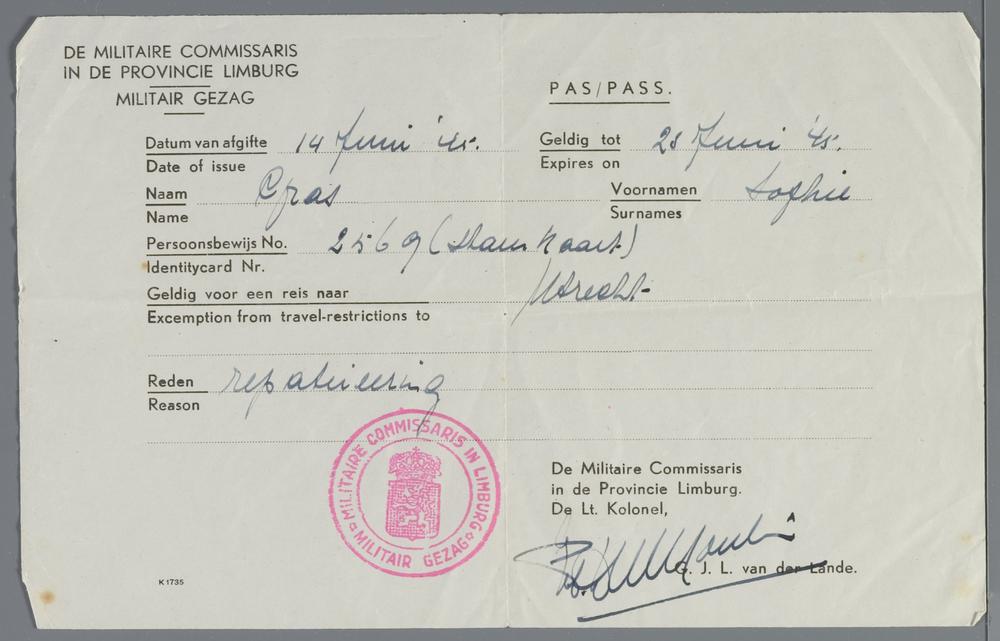 DE MILITAIRE COMMISSARIS
IN DE PROVINCIE LIMBURG
MILITAIR GEZAG
PAS/PASS.
Datum van afgifte 14 Juni '45.
Date of issue
Geldig tot 28 Juni '45.
Expires on
Naam Gras
Name
Voornamen Sophie
Surnames
Persoonsbewijs No. 2569 (stamkaart)
Identitycard Nr.
Geldig voor een reis naar Utrecht
Excemption from travel-restrictions to
Reden repatrieering
Reason
MILITAIRE COMMISSARIS IN LIMBURG
MILITAIR GEZAG
De Militaire Commissaris
in de Provincie Limburg.
De Lt. Kolonel,
G. J. L. van der Lande.
K 1735